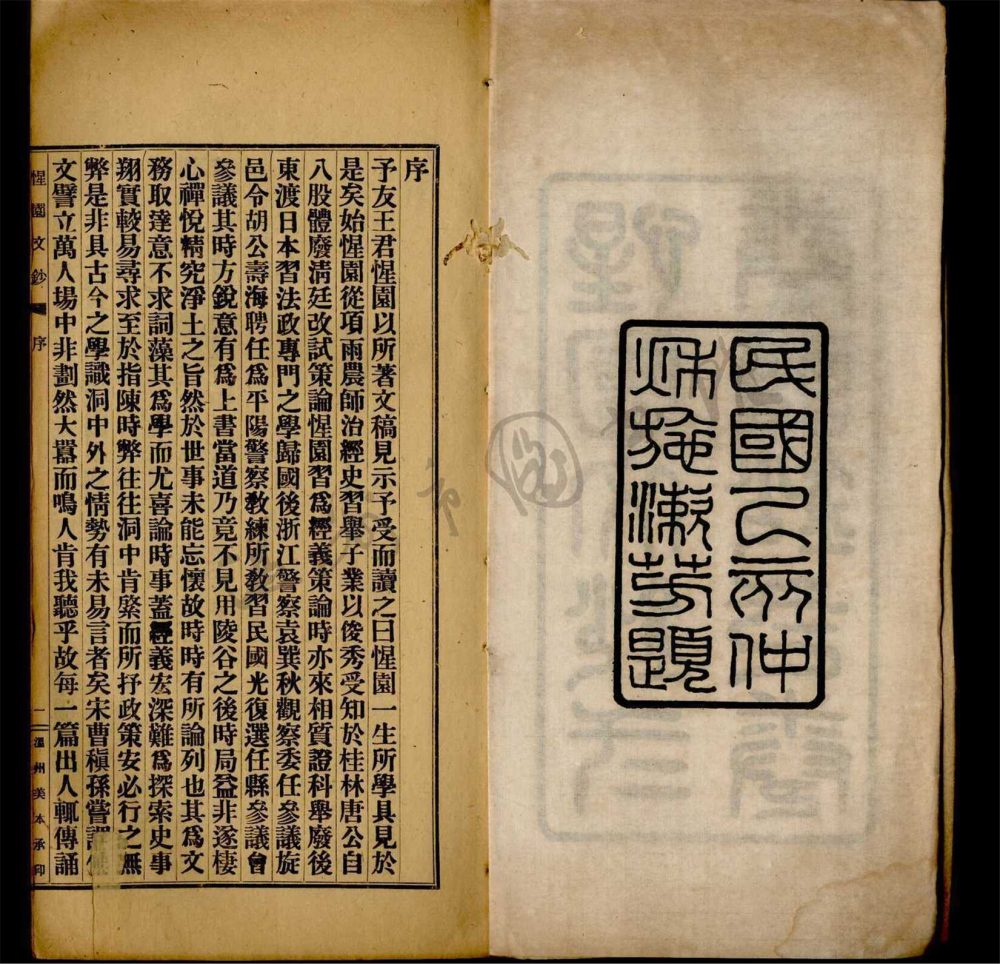 民國乙亥仲
秌施漱芳題
序
予友王君惺園以所著文稿見示予受而讀之曰惺園一生所學具見於
是矣始惺園從項雨農師治經史習舉子業以俊秀受知於桂林唐公自
八股體廢淸廷改試策論惺園習爲經義策論時亦來相質證科舉廢後
東渡日本習法政專門之學歸國後浙江警察袁巽秋觀察委任參議旋
邑令胡公壽海聘任爲平陽警察敎練所敎習民國光復選任縣參議會
參議其時方銳意有爲上書當道乃竟不見用陵谷之後時局益非遂棲
心禪悅精究淨土之旨然於世事未能忘懷故時時有所論列也其爲文
務取達意不求詞藻其爲學而尤喜論時事蓋經義宏深難爲探索史事
翔實較易尋求至於指陳時弊往往洞中肯綮而所抒政策安必行之無
弊是非具古今之學識洞中外之情勢有未易言者矣宋曹稹孫嘗謂
文譬立萬人場中非劃然大嚣而鳴人肯我聽乎故每一篇出人輒傳誦
惺園文鈔 序 一 溫州美本承印